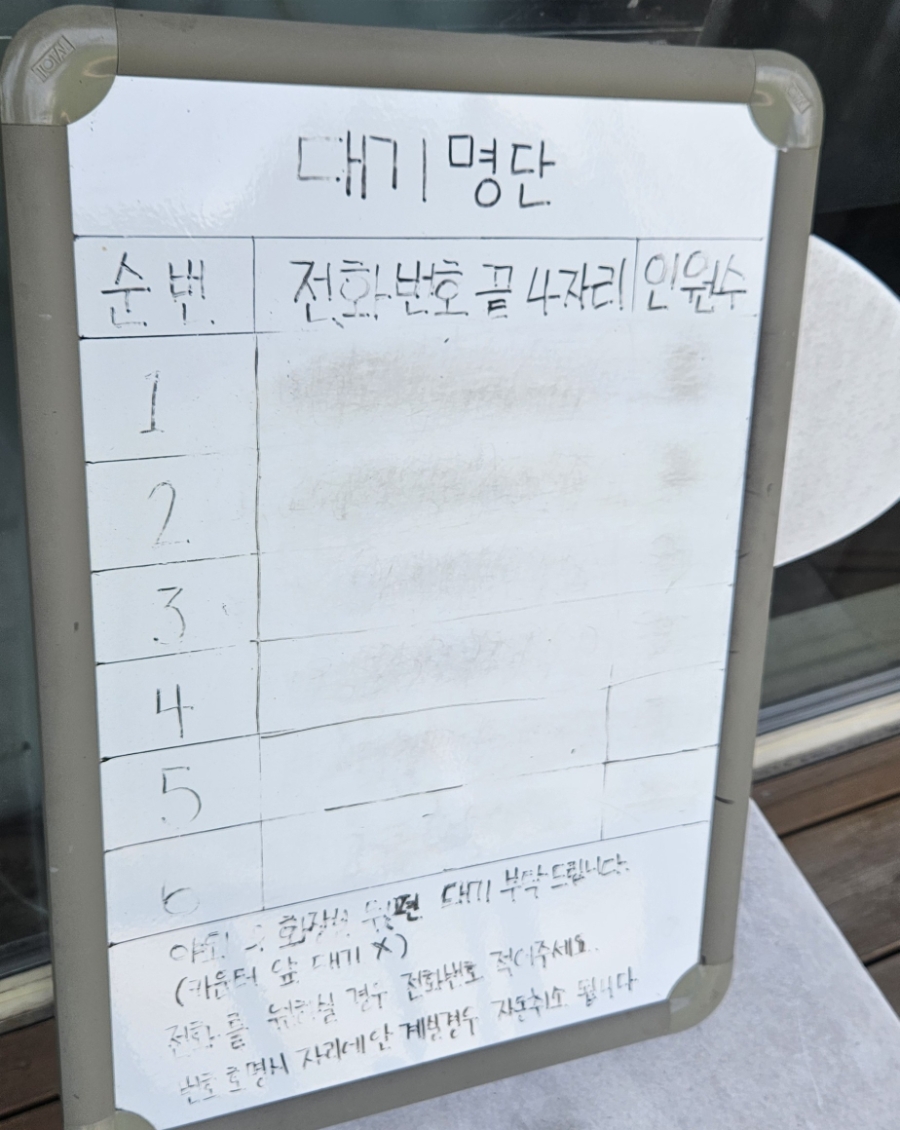 대기 명단
순번 전화번호 끝 4자리 인원수
1
2
3
4
5
6
화장실 뒷편 대기 부탁드립니다.
(카운터 앞 대기 X)
전화를 원하실 경우 전화번호 적어주세요.
번호호명시 자리에 안 계실경우 자동취소 됩니다